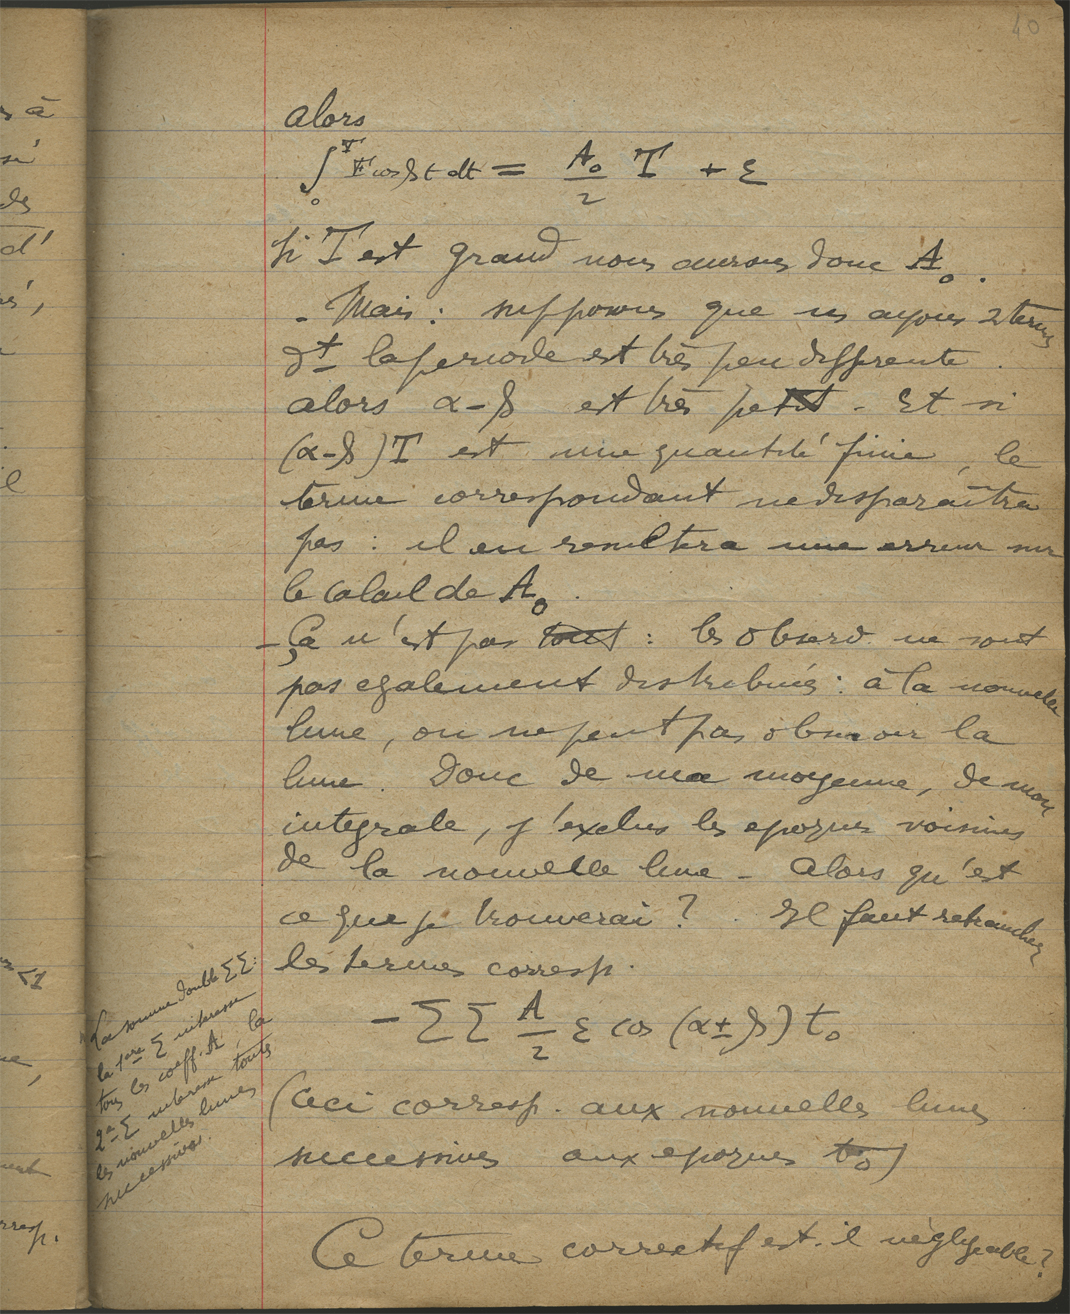 40
alors
∫₀ᵀ F cos βt dt = A₀/2 T + ε
Si T est grand nous aurons donc A₀.
- Mais : supposons que ns ayons 2 termes
dt la periode est très peu differente.
alors α-β est très petit. Et si
(α-β)T est une quantité finie, le
terme correspondant ne disparaîtra
pas : il en resultera une erreur sur
le calcul de A₀.
- Ça n'est pas tout : les observ. ne sont
pas egalement distribués : à la nouvelle
lune, on ne peut pas observer la
lune. Donc de ma moyenne, de mon
integrale, j'exclus les epoques voisines
de la nouvelle lune - Alors qu'est
ce que je trouverai ? Il faut retrancher
les termes corresp.
- Σ Σ A/2 ε cos (α ± β) t₀
(Ceci corresp. aux nouvelles lunes
successives aux epoques t₀)
Ce terme correctif est-il négligeable ?
La somme double ΣΣ :
la 1ere Σ interesse
tous les coeff. A, la
2e Σ interesse toutes
les nouvelles lunes
successives.
s à
si
des
d'
il
<1
corresp.